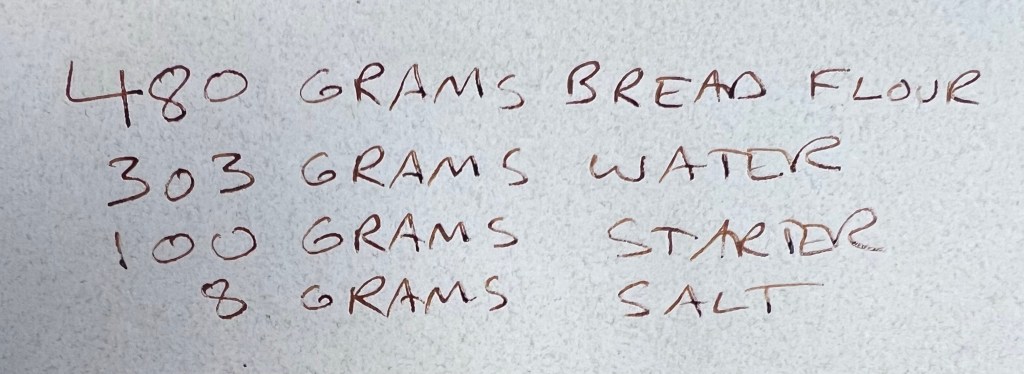 480 GRAMS BREAD FLOUR
303 GRAMS WATER
100 GRAMS STARTER
8 GRAMS SALT